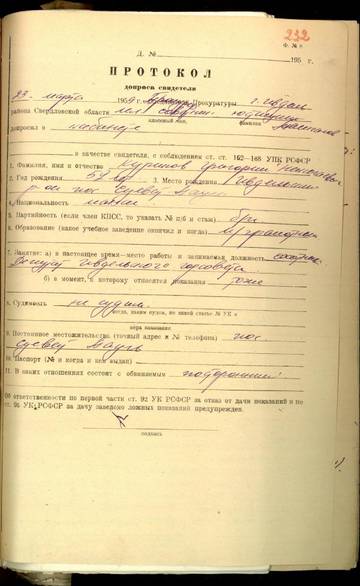 232
Ф. № 8
Д. № 195 г.
ПРОТОКОЛ
допроса свидетеля
23 марта 1959 г. Прокуратуры г. Ивдель
района Свердловской области мл. советник юстиции
классный чин, фамилия
допросил в кабинете
в качестве свидетеля, с соблюдением ст. ст. 162—168 УПК РСФСР
1. Фамилия, имя и отчество Куриков Григорий Николаевич
2. Год рождения 3. Место рождения Ивдельский
р-он пос. Суеват Пауль
4. Национальность манси
5. Партийность (если член КПСС, то указать № п/б и стаж) б/п
6. Образование (какое учебное заведение окончил и когда)
7. Занятие: а) в настоящее время—место работы и занимаемая должность
Ивдельского
б) в момент, к которому относятся показания тоже
8. Судимость не судим
когда, каким судом, по какой статье УК и
мера наказания
9. Постоянное местожительство (точный адрес и № телефона) пос.
Суеват Пауль
10. Паспорт (№ и когда и кем выдан)
11. В каких отношениях состоит с обвиняемым посторонний
Об ответственности по первой части ст. 92 УК РСФСР за отказ от дачи показаний и по
ст. 95 УК РСФСР за дачу заведомо ложных показаний предупрежден.
подпись